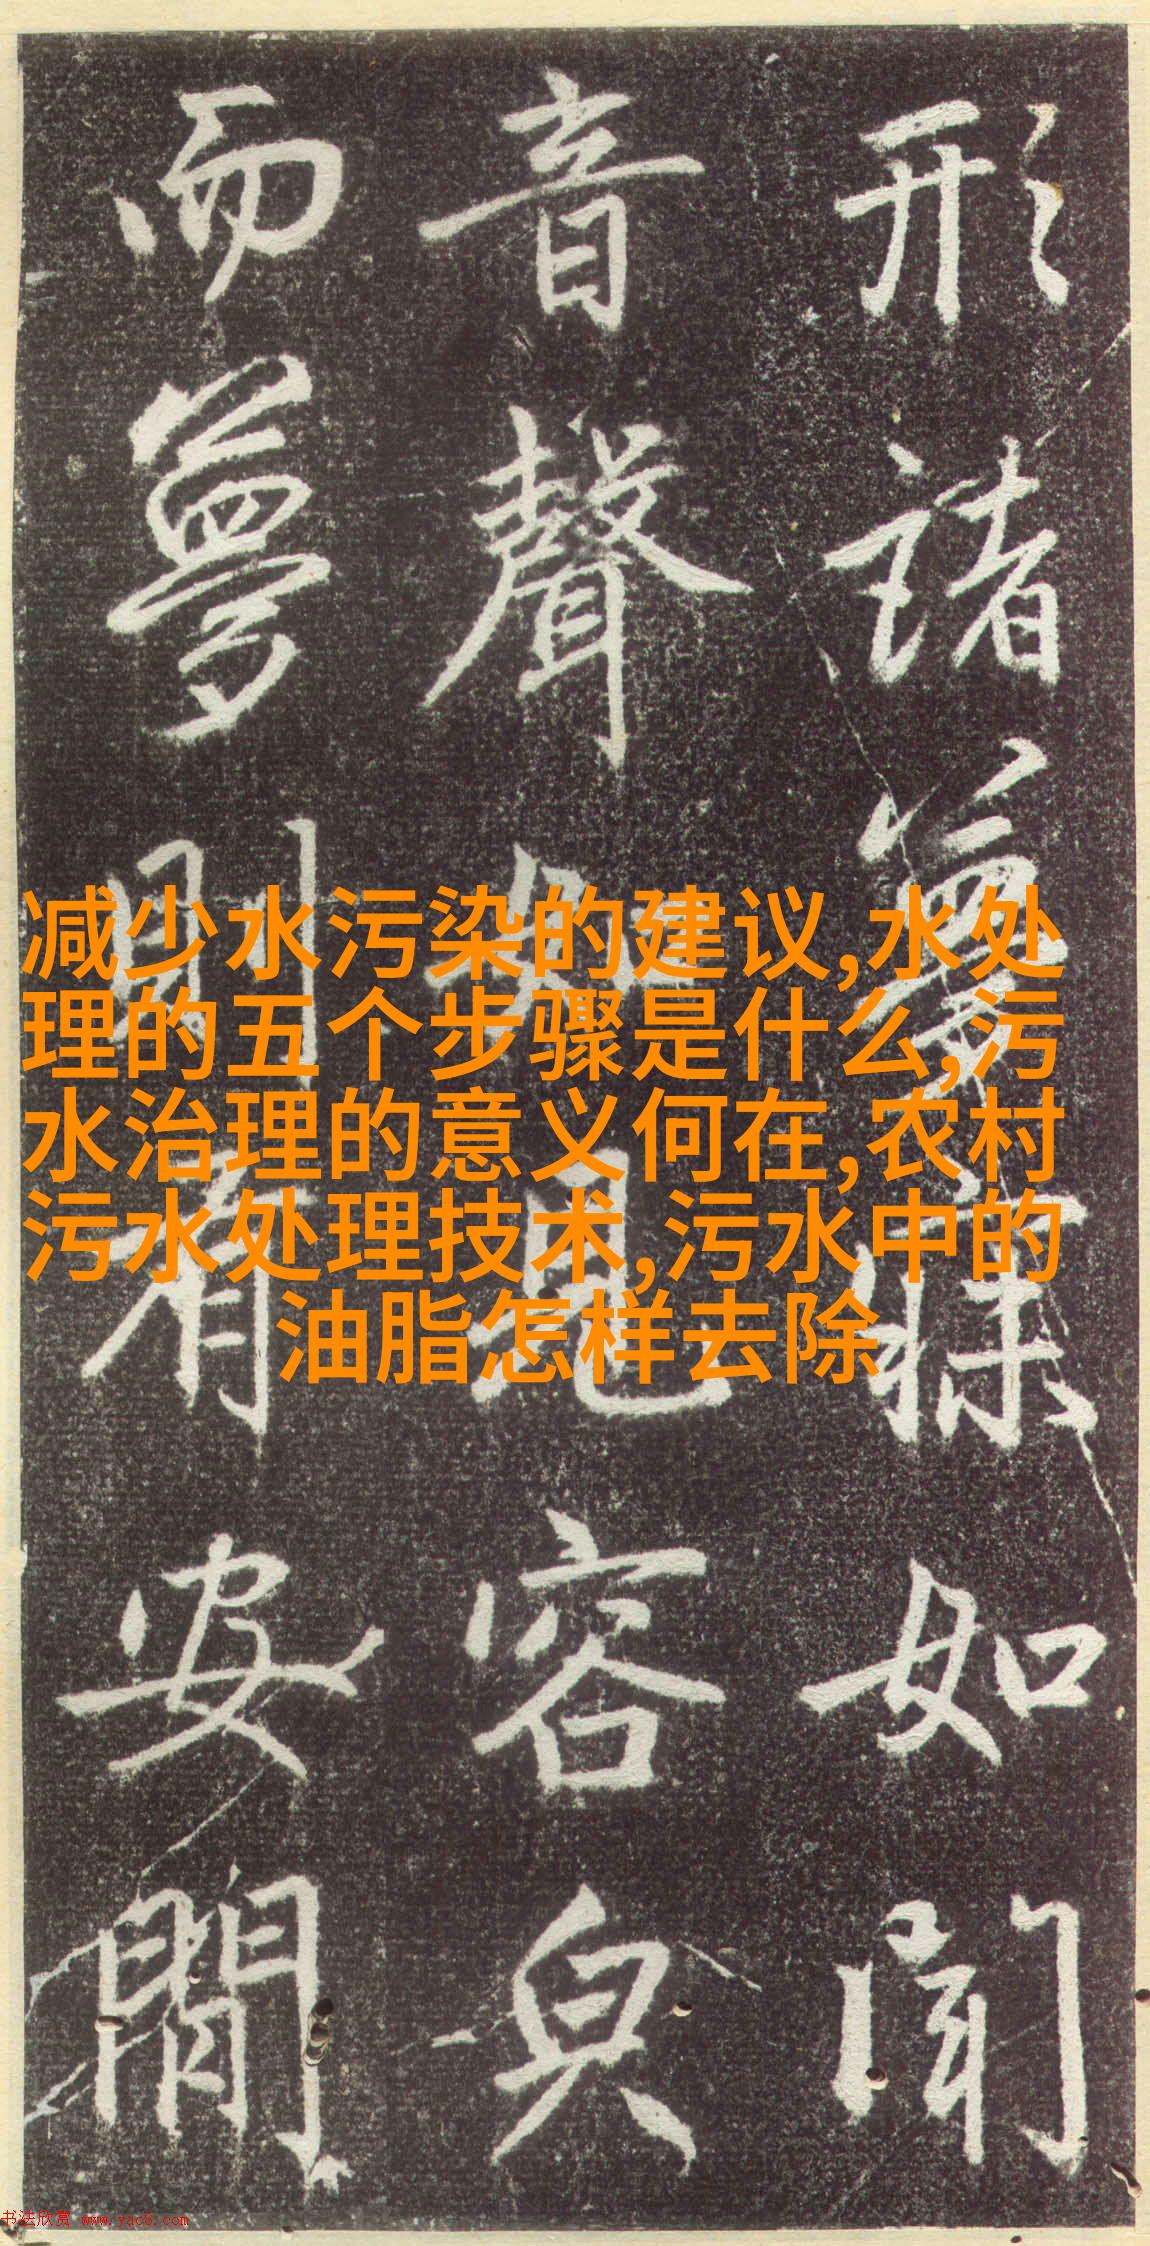 形諸寐如聞
音聲如見容皃
而夢則有安閒
减少水污染的建议,水处
理的五个步骤是什么,污
水治理的意义何在,农村
污水处理技术,污水中的
油脂怎样去除
书法欣赏 www.yac8.com